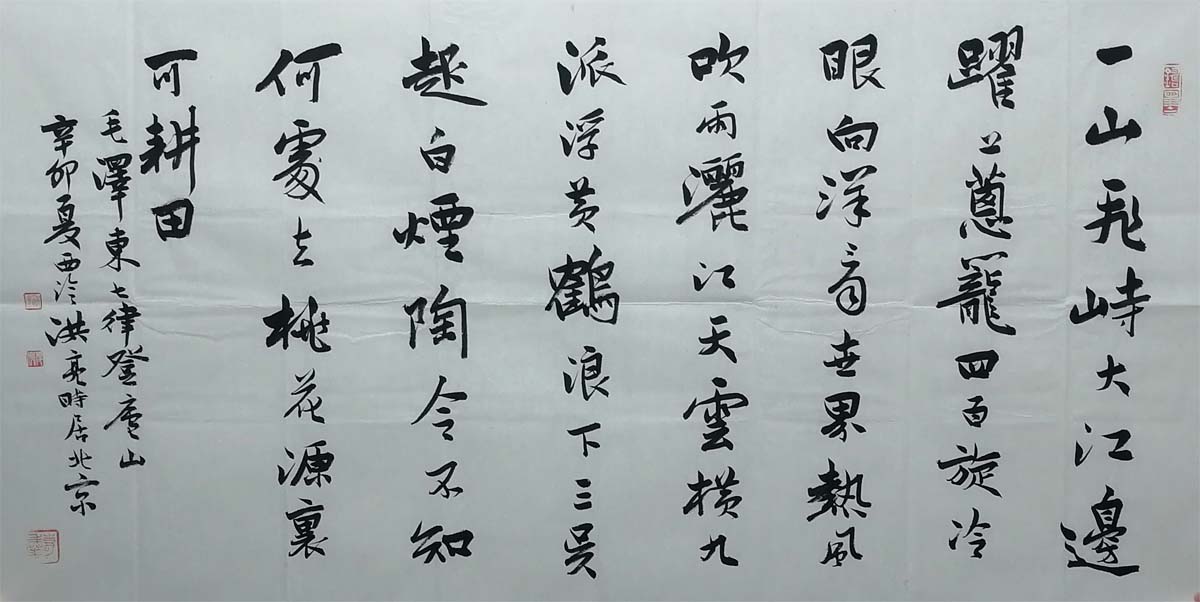 一山飛峙大江邊
躍上蔥蘢四百旋冷
眼向洋看世界熱風
吹雨灑江天雲橫九
派浮黃鶴浪下三吳
起白煙陶令不知
何處去桃花源裏
可耕田
毛澤東七律登廬山
辛卯夏西泠洪亮時居北京